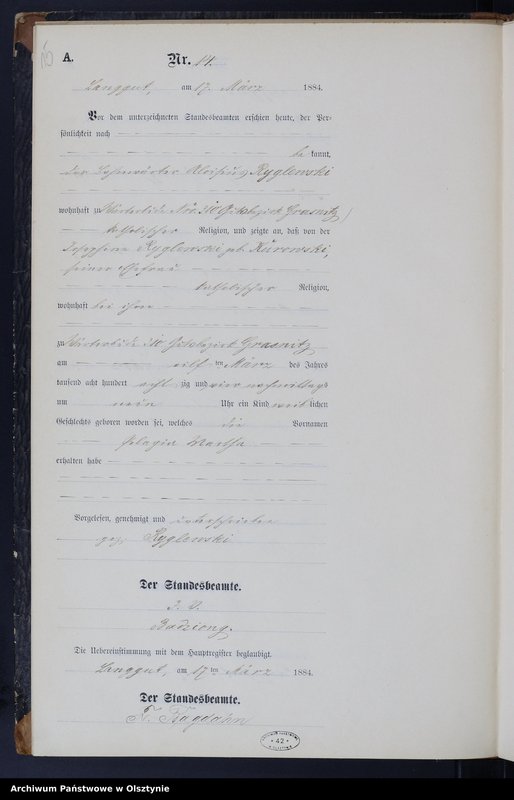 A.
Nr. 14.
Langgut, am 17. März 1884.
Vor dem unterzeichneten Standesbeamten erschien heute, der Per-
sönlichkeit nach
be kannt,
der Aloisius Ryglewski
wohnhaft zu Wärterbude Nro. 310 Gutsbezirk Grasnitz
katholischer Religion, und zeigte an, daß von der
Josephina Ryglewski geb. Kurowski,
seiner Ehefrau
katholischer Religion,
wohnhaft bei ihm
zu Wärterbude 310, Gutsbezirk Grasnitz
am eilf ten März des Jahres
tausend acht hundert acht zig und vier nachmittags
um neun Uhr ein Kind weib lichen
Geschlechts geboren worden sei, welches die Vornamen
Pelagia Martha
erhalten habe
Vorgelesen, genehmigt und unterschrieben
gez. Ryglewski
Der Standesbeamte.
I. V.
Badziong.
Die Uebereinstimmung mit dem Hauptregister beglaubigt.
Langgut, am 17ten März 1884.
Der Standesbeamte.
42
Archiwum Państwowe w Olsztynie